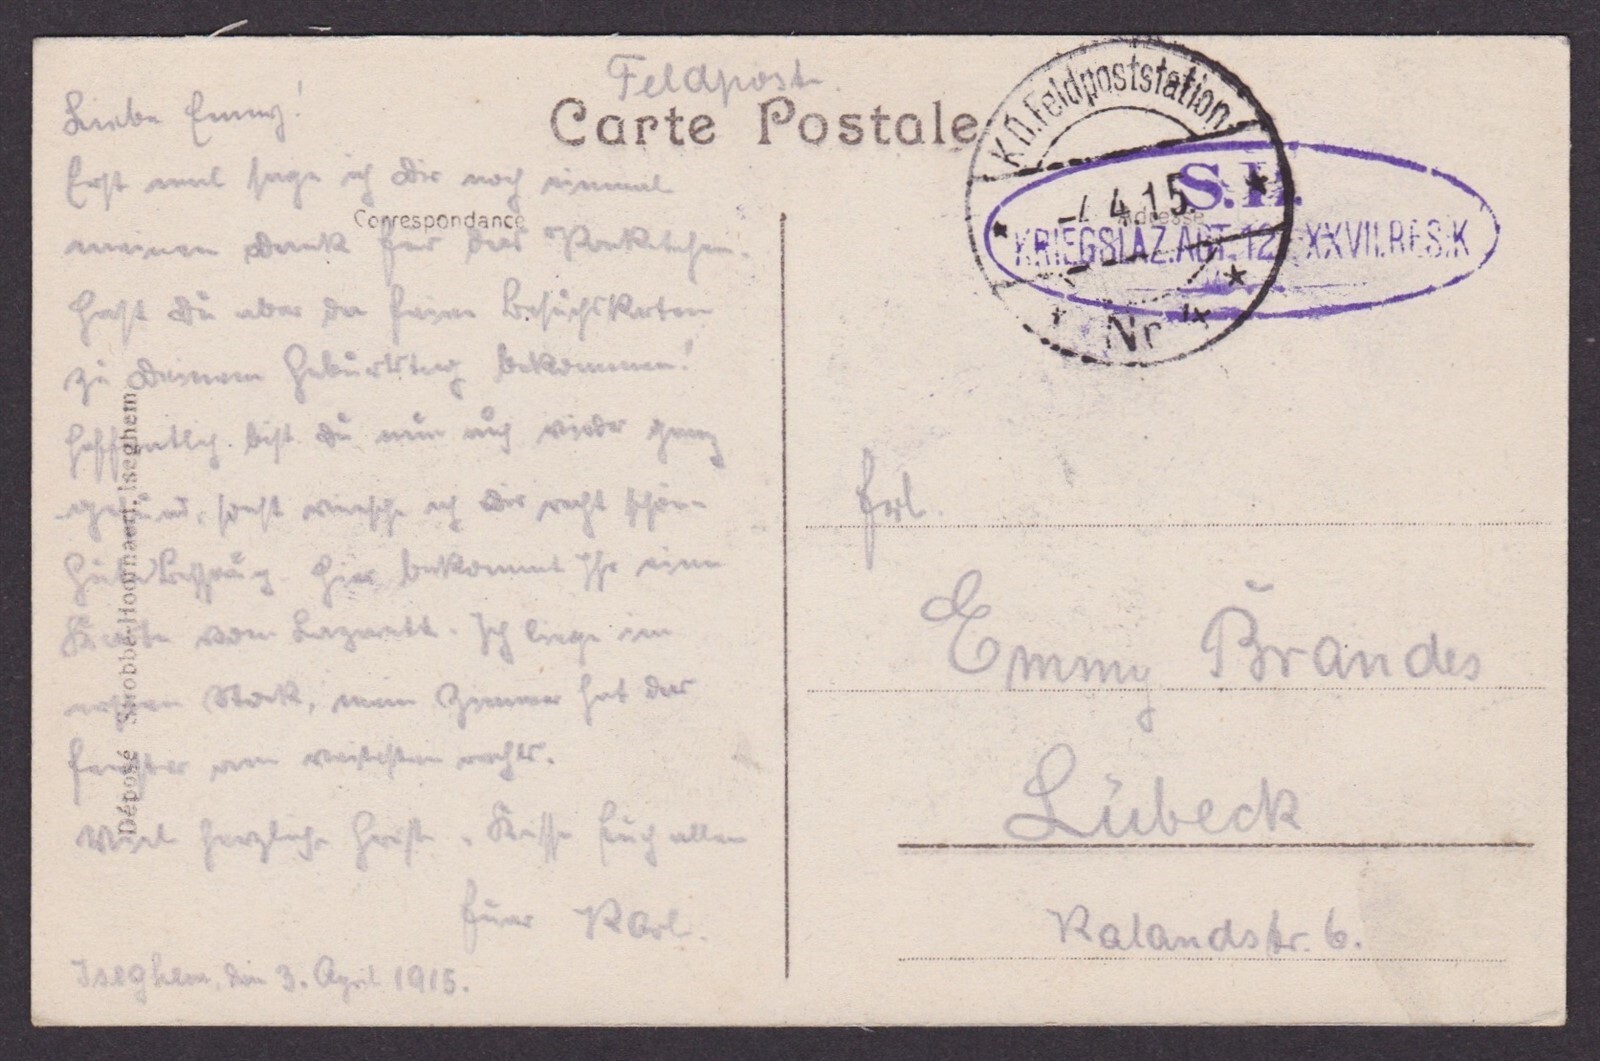 Feldpost.
Carte Postale
Correspondance
Adresse
K.D. Feldpoststation
4.4.15.
Nr 4
S.B.
KRIEGSLAZ.ABT.12. XXVII.RES.K
Liebe Emmy!
Erst mal sage ich Dir noch einmal
meinen Dank für das Paketchen.
Hast Du aber da feine Besuchskarten
zu Deinem Geburtstag bekommen!
Hoffentlich bist Du nun auch wieder ganz
gesund, sonst wünsche ich Dir recht schöne
Gute Besserung. Hier bekommt Ihr eine
Karte vom Lazarett. Ich liege im
ersten Stock, mein Zimmer hat das
Fenster am weitesten rechts.
Viel herzliche Grüße u. Küsse Euch allen
Euer Karl.
Iseghem, den 3. April 1915.
Déposé Strobbe-Hoornaert, Iseghem
Frl.
Emmy Brandes
Lübeck
Kalandstr. 6.